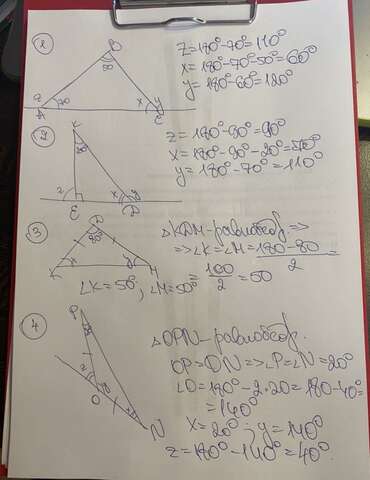 1
B
50
z
70
x
y
A
C
z=180°-70°=110°
x=180°-70°-50°=60°
y=180°-60°=120°
2
K
20
z
x
y
E
D
z=180°-90°=90°
x=180°-90°-20°=70°
y=180°-70°=110°
3
D
80°
x
y
K
M
△KDM-равнобедр =>
=> ∠K=∠M= 180-80 / 2 =
= 100 / 2 = 50
∠K=50°, ∠M=50°
4
P
20
z
y
x
O
N
△OPN-равнобедр.
OP=ON => ∠P=∠N=20°
∠O=180°-2·20=180-40=
=140°
x=20°; y=140°
z=180°-140°=40°.